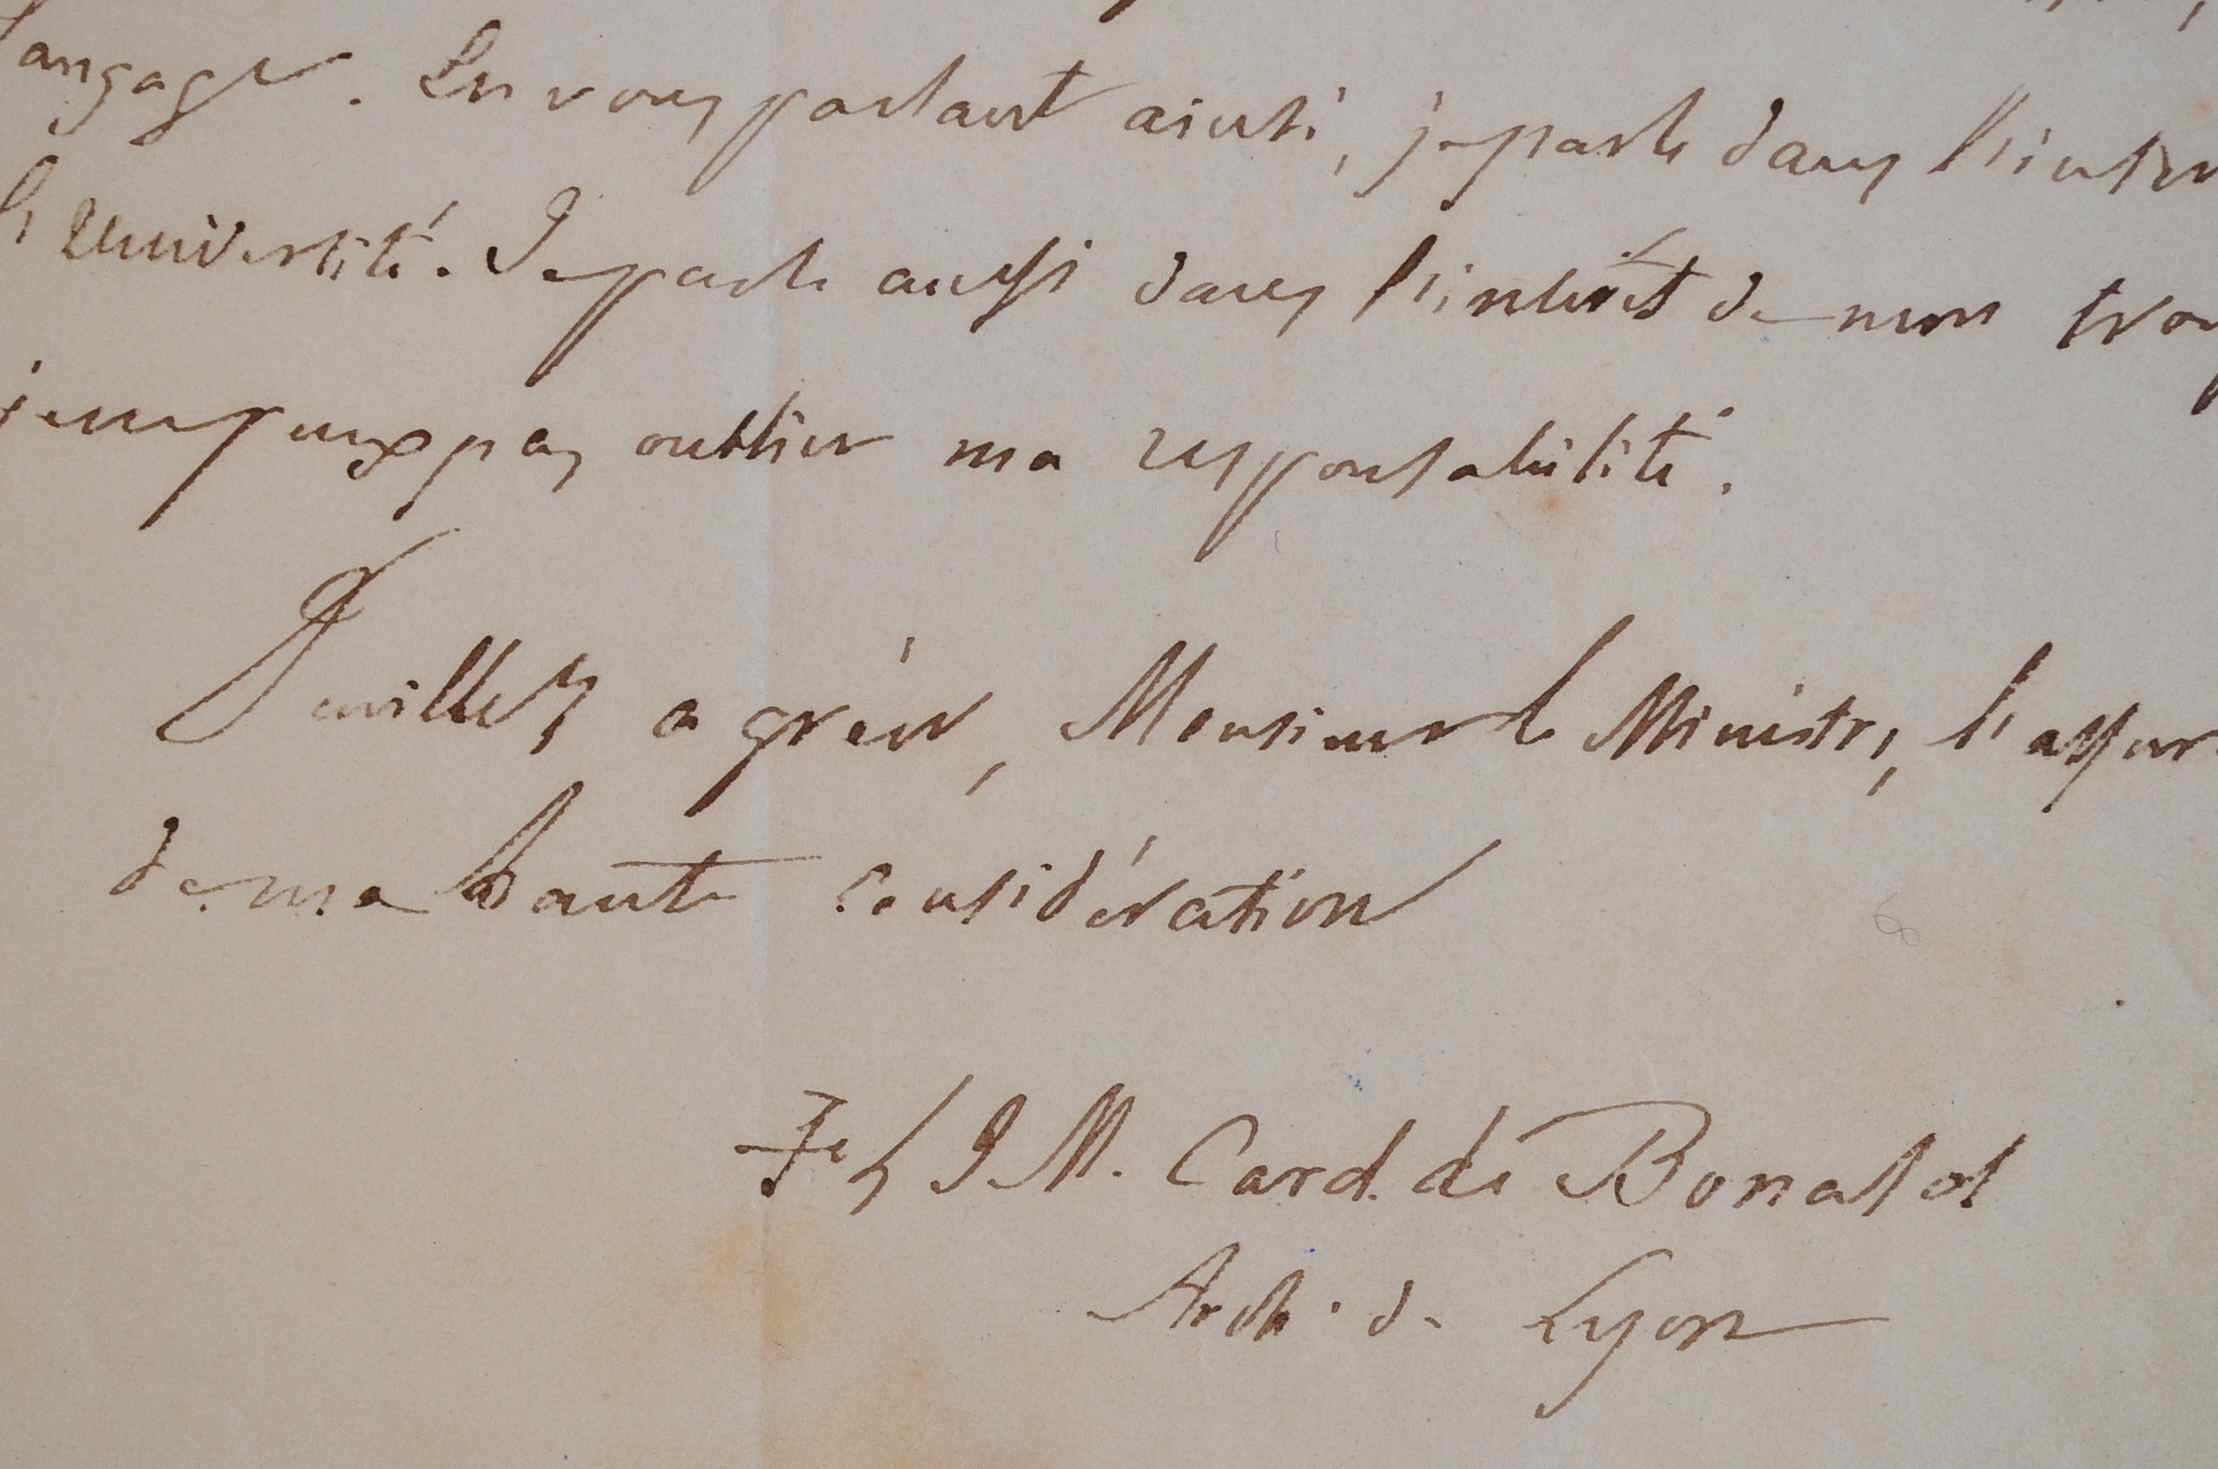 langage. En vous parlant ainsi, je parle dans l'intér
l'Université. Je parle aussi dans l'intérêt de mon trou
je ne peux pas oublier ma responsabilité.
Veuillez agréer, Monsieur le Ministre, l'assur
de ma haute considération
L J M. Card. de Bonald
Arch. de Lyon